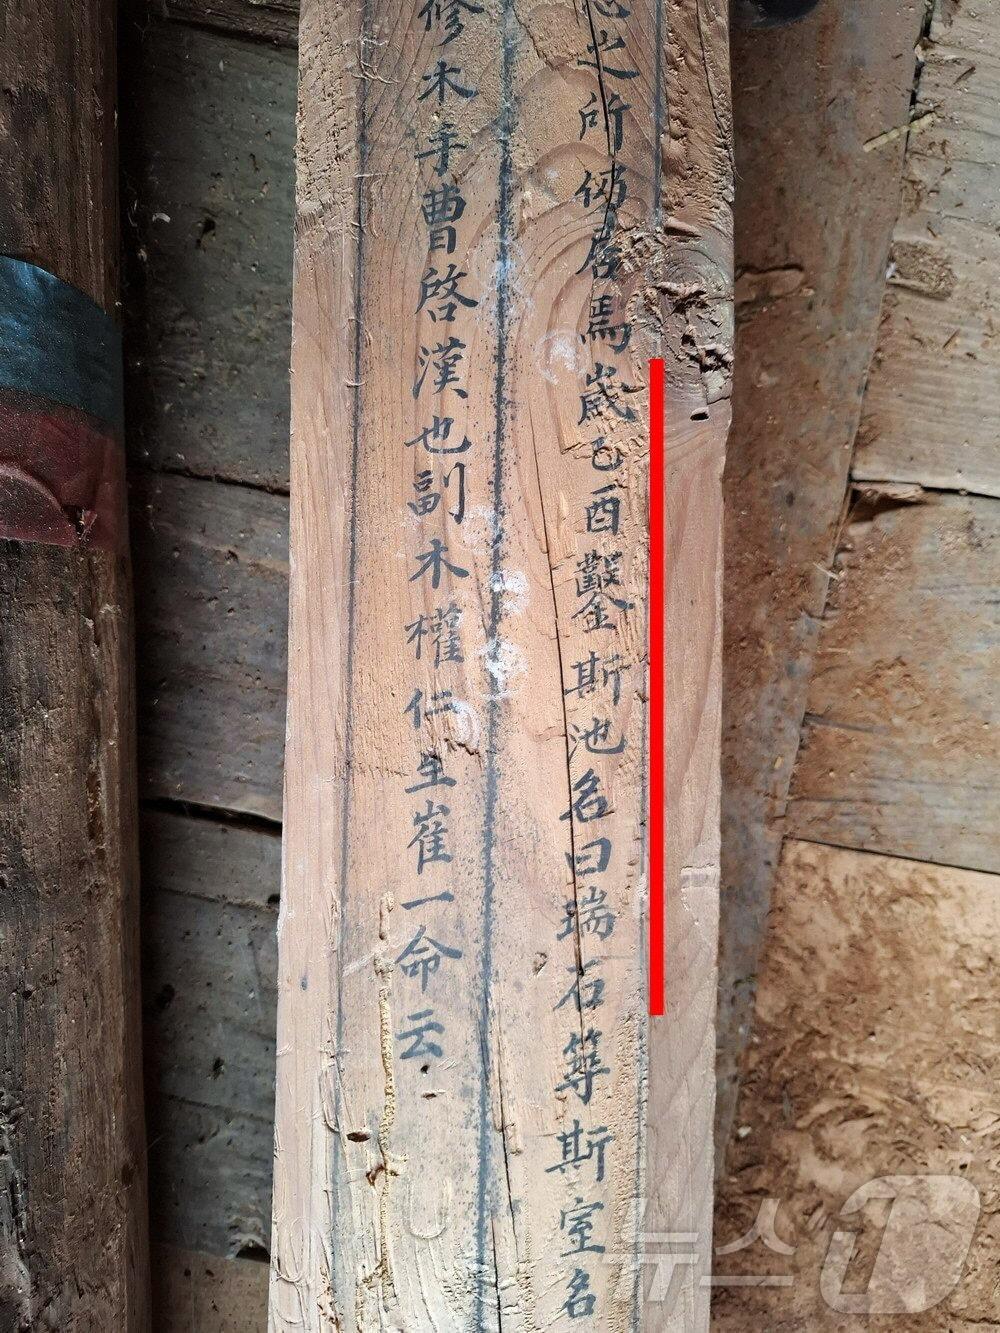 之所偤居焉歲己酉鑿斯池名曰瑞石築斯室名
修木手曹啓漢也副木權仁生崔一命云
뉴스1